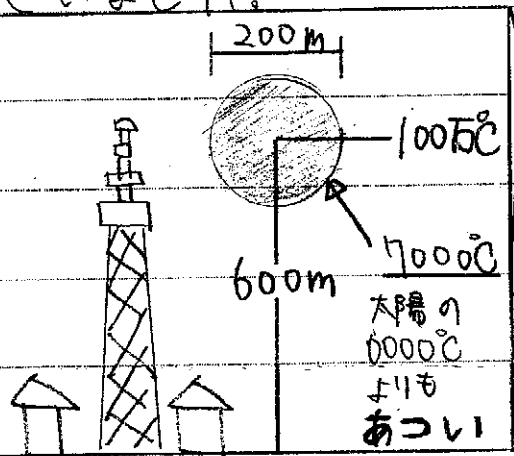 200m
100万℃
7000℃
600m
太陽の
6000℃
よりも
あつい